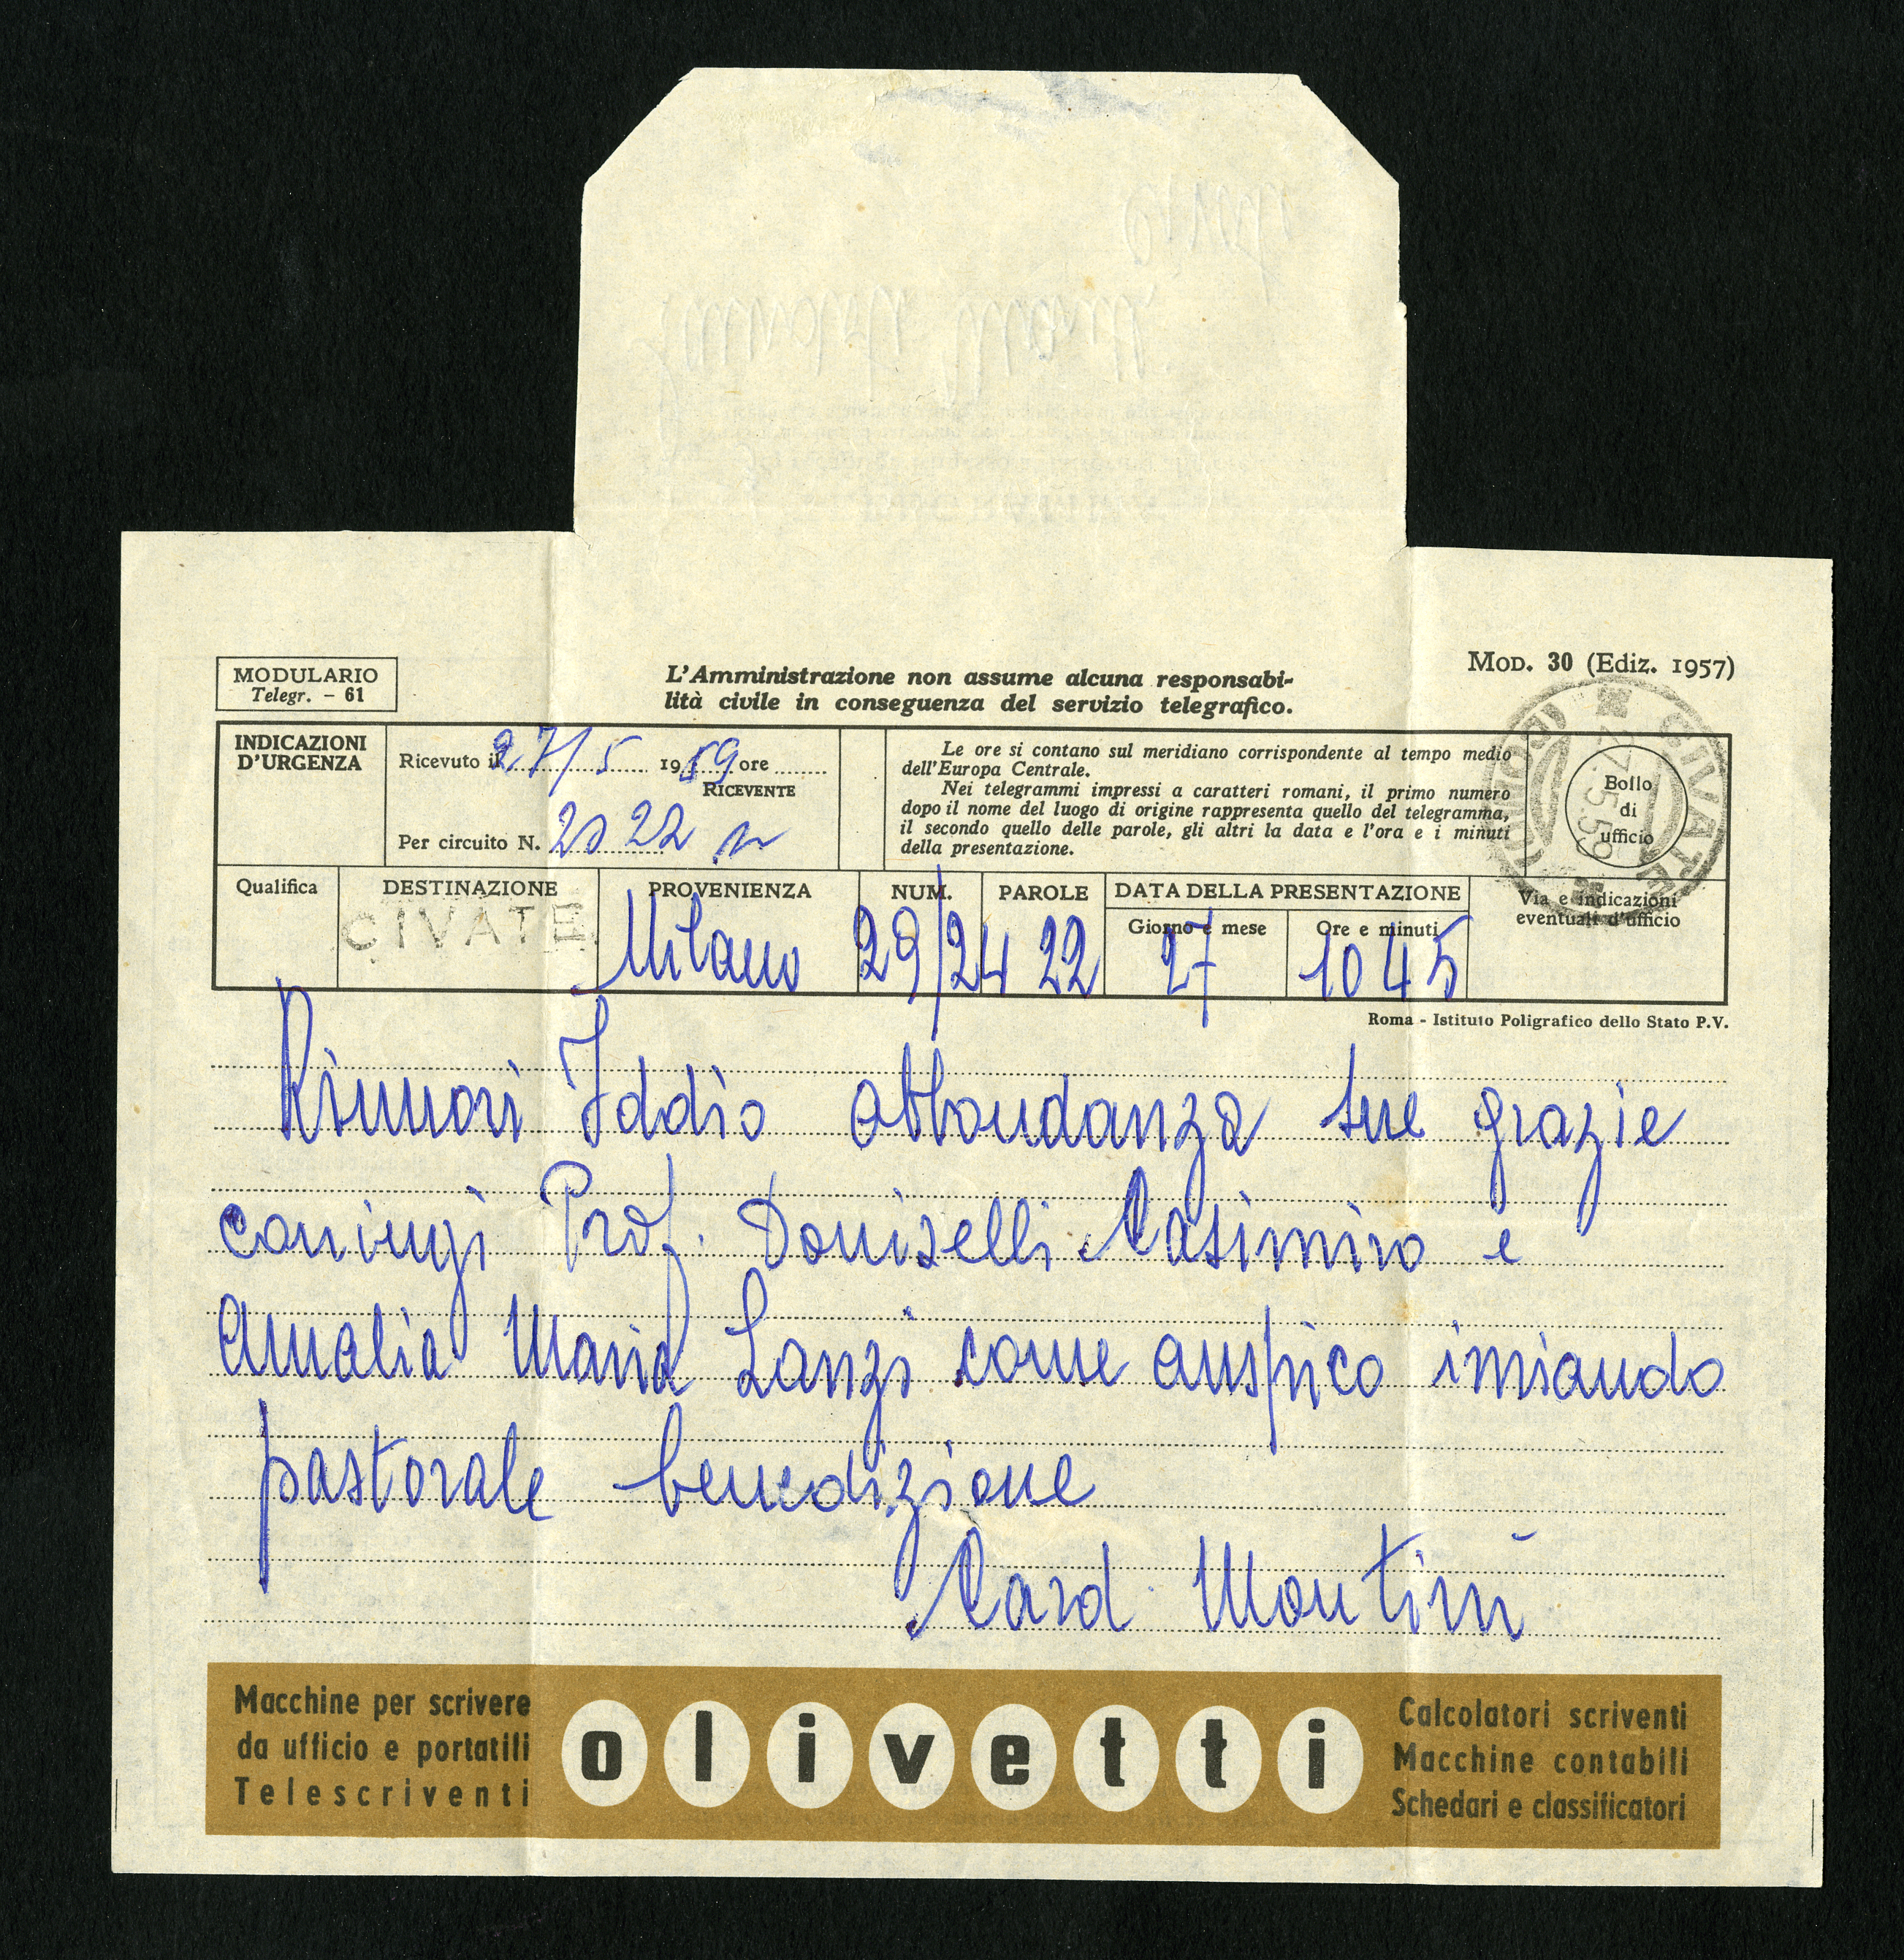 MODULARIO
Telegr. - 61
L'Amministrazione non assume alcuna responsabi-
lità civile in conseguenza del servizio telegrafico.
Mod. 30 (Ediz. 1957)
INDICAZIONI
D'URGENZA
Ricevuto il 27/5 1959 ore
RICEVENTE
Per circuito N. 2022
Le ore si contano sul meridiano corrispondente al tempo medio
dell'Europa Centrale.
Nei telegrammi impressi a caratteri romani, il primo numero
dopo il nome del luogo di origine rappresenta quello del telegramma,
il secondo quello delle parole, gli altri la data e l'ora e i minuti
della presentazione.
Bollo
di
ufficio
CIVATE
27.5.59
(COMO)
Qualifica
DESTINAZIONE
CIVATE
PROVENIENZA
Milano
NUM.
29/24
PAROLE
22
DATA DELLA PRESENTAZIONE
Giorno e mese
27
Ore e minuti
1045
Via e indicazioni
eventuali d'ufficio
Roma - Istituto Poligrafico dello Stato P.V.
Rinnovi Iddio abbondanza sue grazie
coniugi Prof. Doniselli Casimiro e
Amalia Maria Lanzi come auspico inviando
pastorale benedizione
Card Montini
Macchine per scrivere
da ufficio e portatili
Telescriventi
olivetti
Calcolatori scriventi
Macchine contabili
Schedari e classificatori